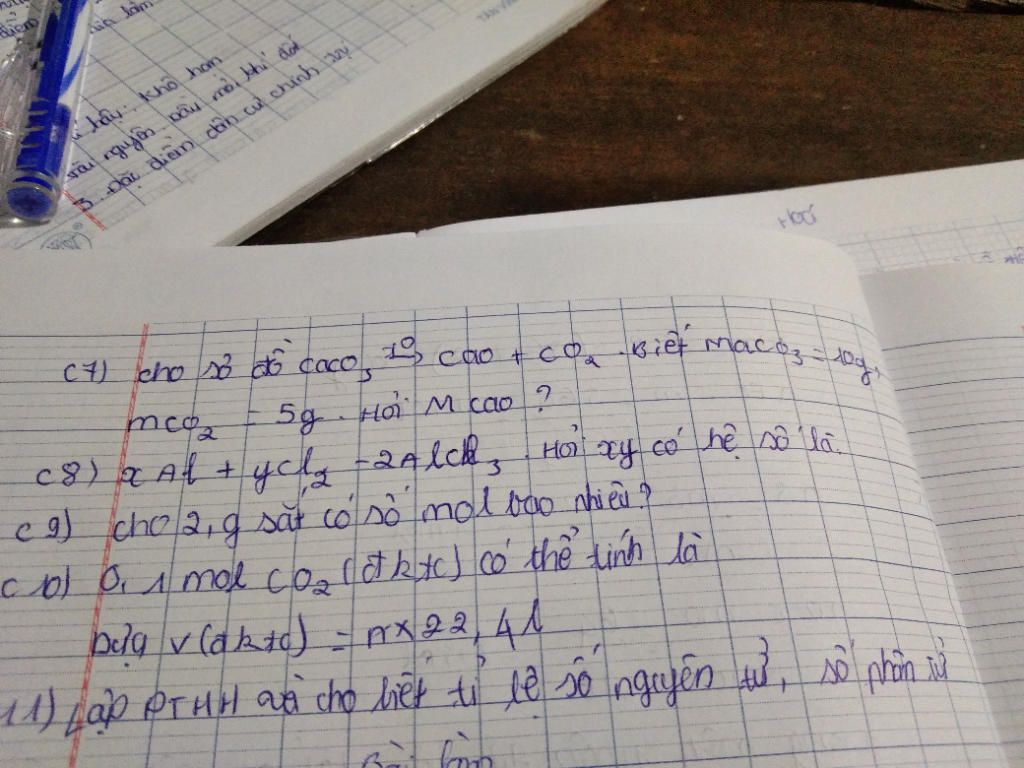 dân cư chính trị
sài nguyên dầu mỏ, khí đốt
3. Đặc điểm dân cư chính trị
u hậu: khô hạn
Hoá
C7) cho sơ đồ CaCO3 t0 CaO + CO2. Biết MaCO3 = 10g,
mCO2 = 5g. Hỏi M CaO ?
C8) xAl + yCl2 - 2AlCl3. Hỏi xy có hệ số là.
C9) cho 2,g sắt có số mol bao nhiêu?
C10) 0,1 mol CO2 (đktc) có thể tính là
Dựa V(đktc) = n x 22,4l
11) Lập PTHH và cho biết tỉ lệ số nguyên tử, số phân tử
Bài làm